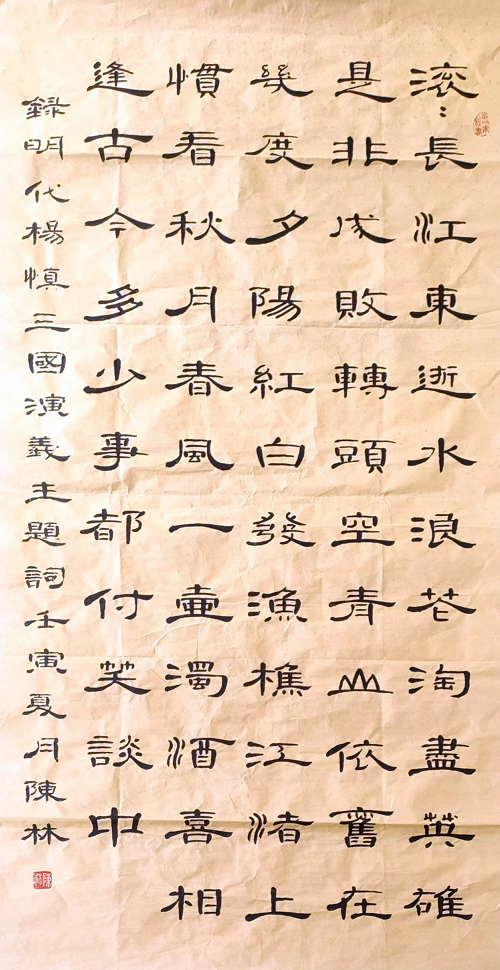 滚：長江東逝水浪花淘盡英雄
是非成敗轉頭空青山依舊在
幾度夕陽紅白發漁樵江渚上
慣看秋月春風一壷濁酒喜相
逢古今多少事都付笑談中
録明代楊慎三國演義主題詞壬寅夏月陳林